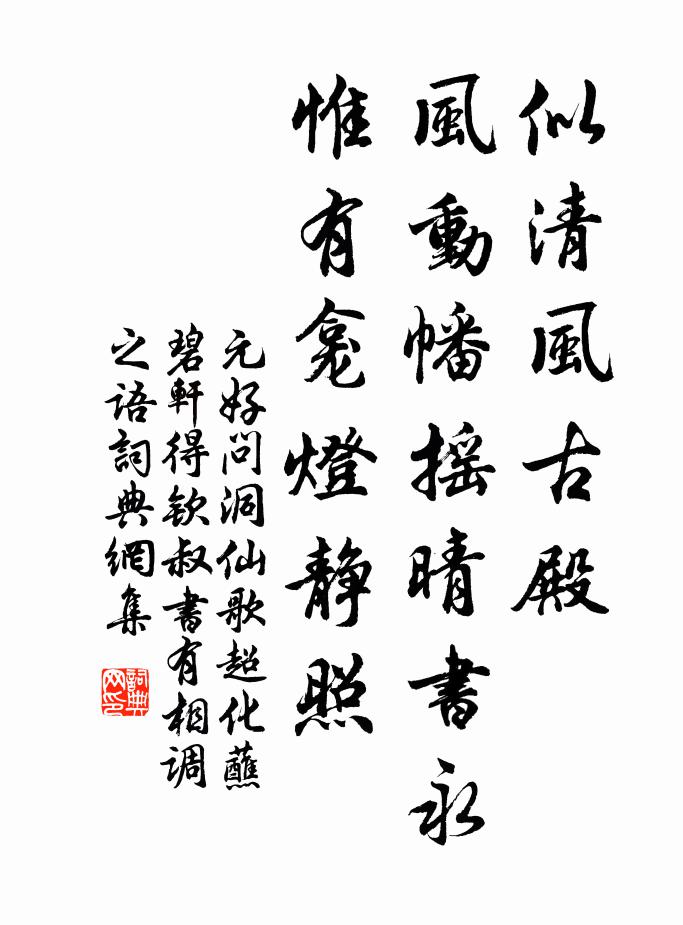 似清風古殿
風動幡摇晴書永
惟有龛燈静照
元好问洞仙歌超化蘸
碧軒得欽叔書有相調
之语詞典網集
詞典
网印